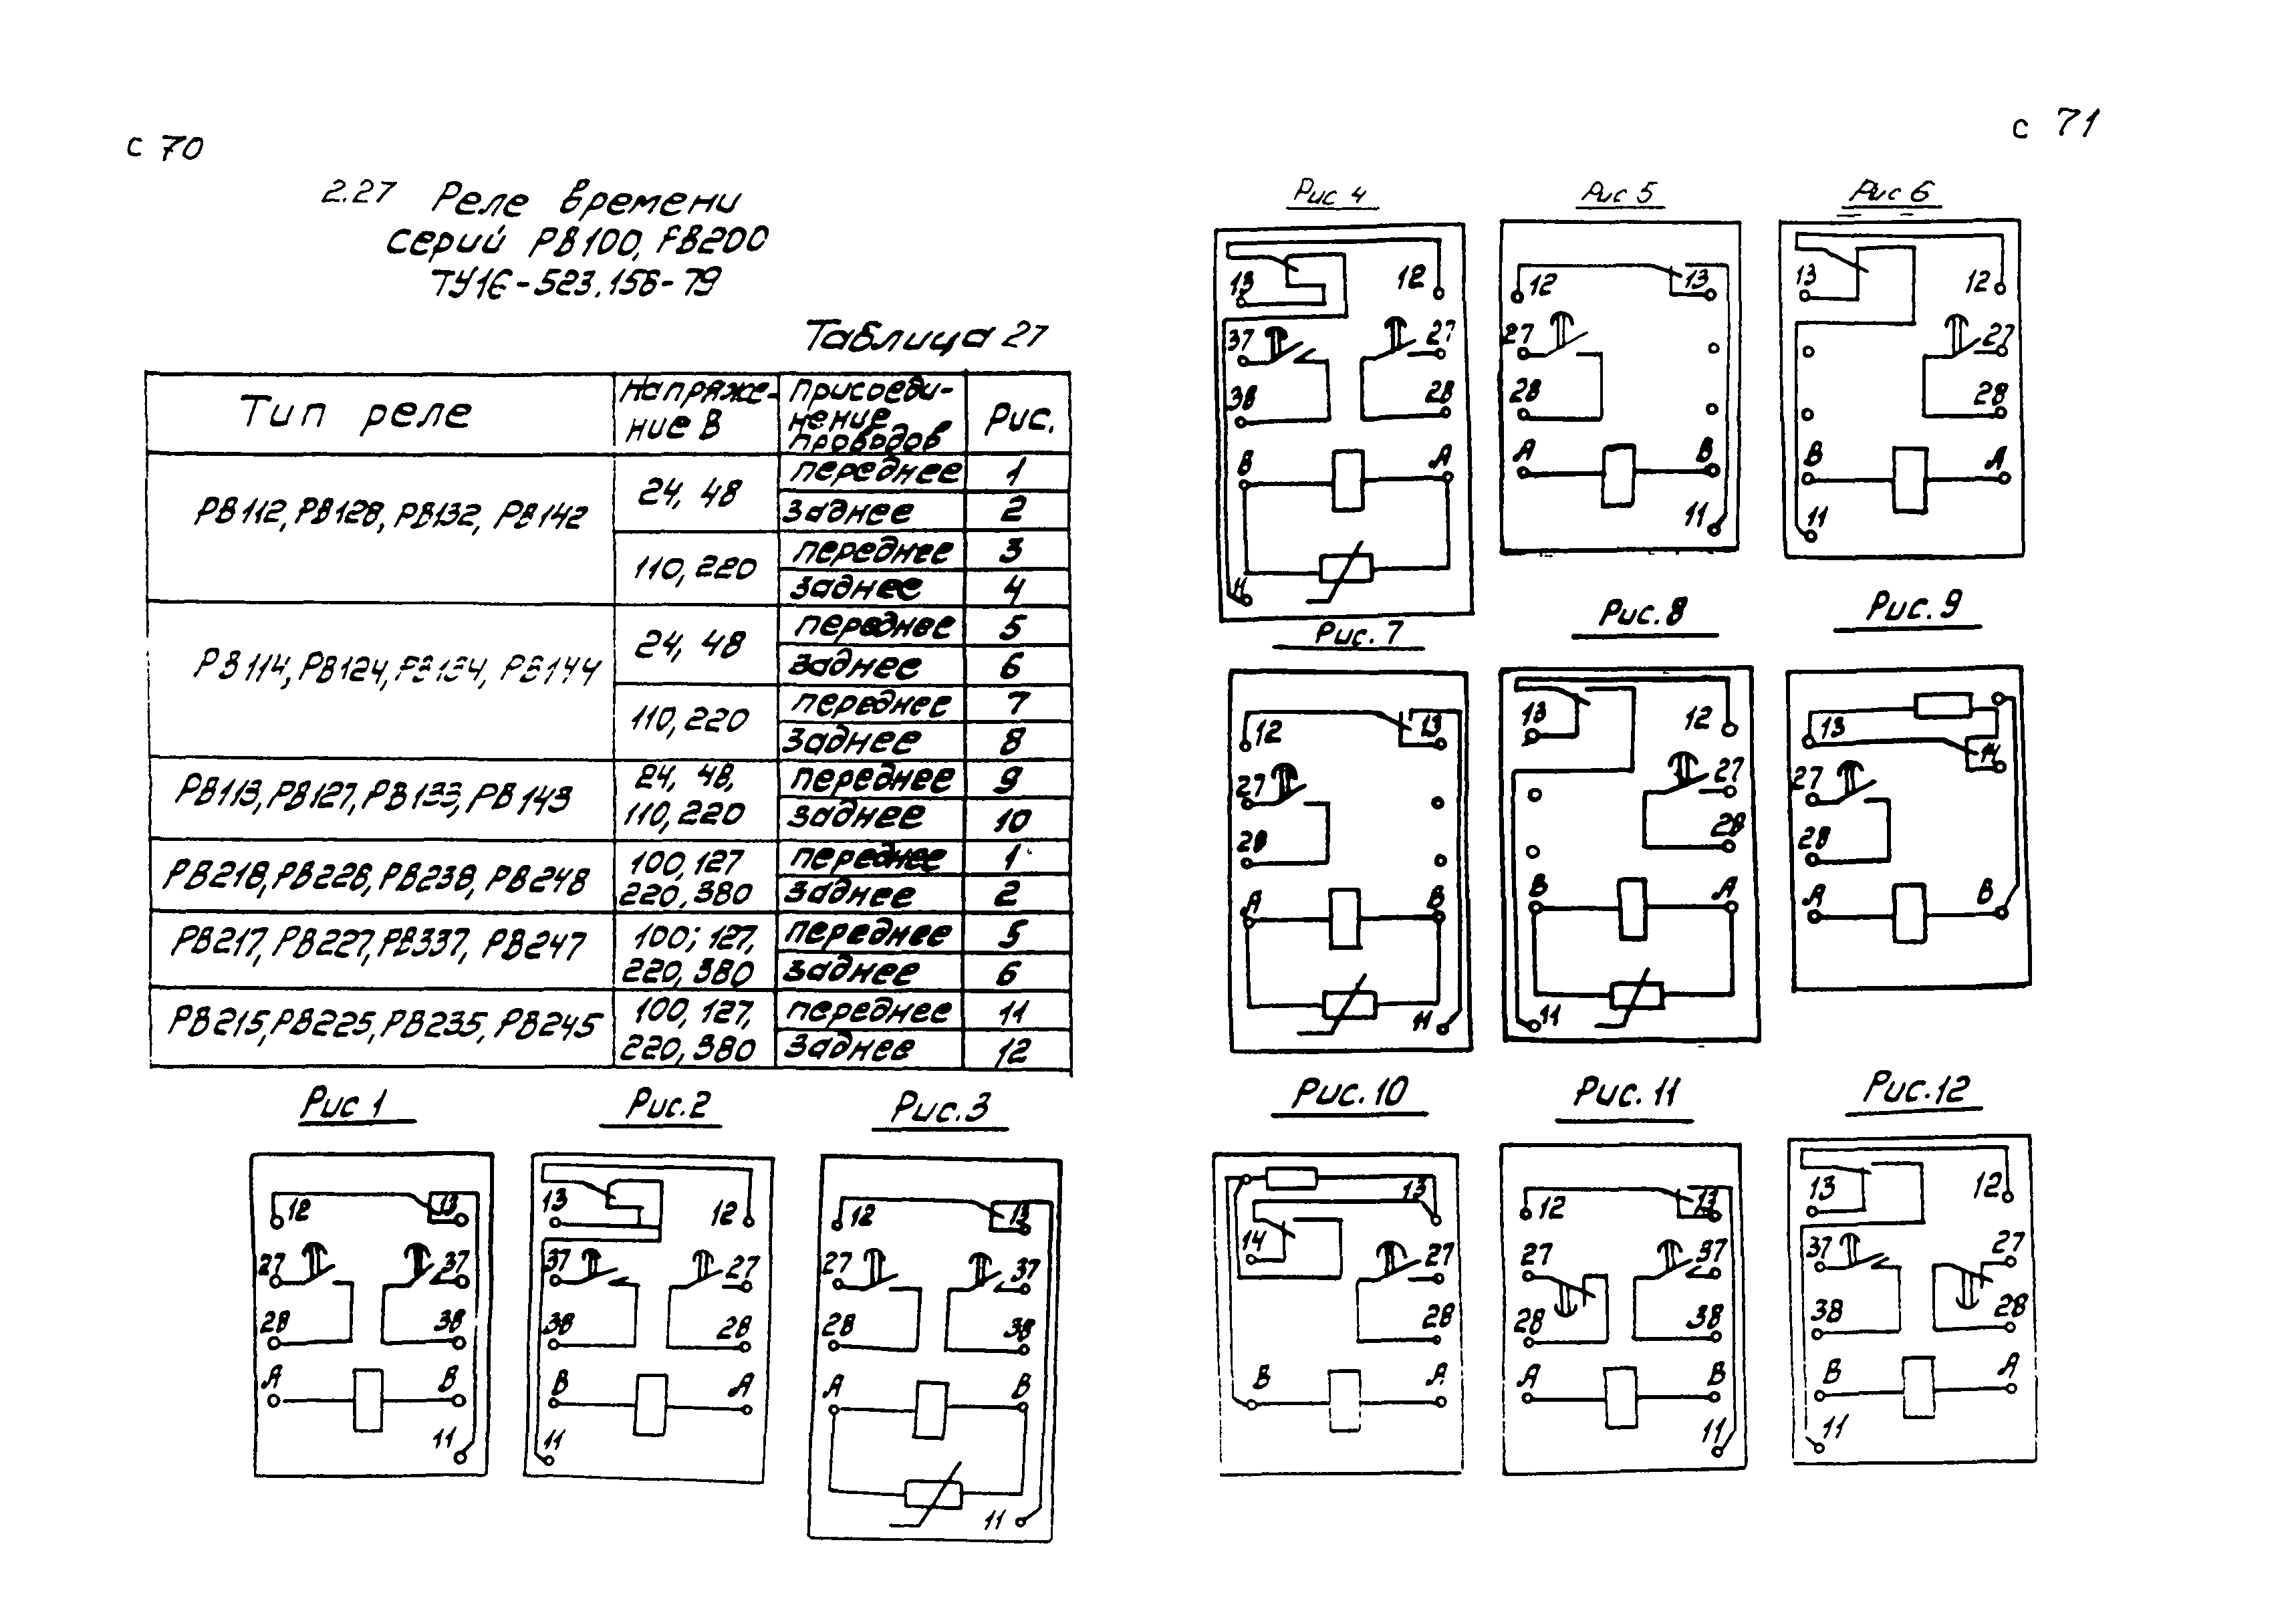 с 70
2.27 Реле времени
серий РВ100, РВ200
ТУ16-523.156-79
Таблица 27
Тип реле
Напряже-
ние В
Присоеди-
нение
проводов
Рис.
РВ112, РВ128, РВ132, РВ142
24, 48
переднее
1
заднее
2
110, 220
переднее
3
заднее
4
РВ114, РВ124, РВ134, РВ144
24, 48
переднее
5
заднее
6
110, 220
переднее
7
заднее
8
РВ113, РВ127, РВ133, РВ143
24, 48,
110, 220
переднее
9
заднее
10
РВ218, РВ228, РВ238, РВ248
100, 127
220, 380
переднее
1
заднее
2
РВ217, РВ227, РВ337, РВ247
100; 127,
220, 380
переднее
5
заднее
6
РВ215, РВ225, РВ235, РВ245
100, 127,
220, 380
переднее
11
заднее
12
Рис 1
12 13
27 37
28 38
А В
11
Рис.2
13 12
37 27
38 28
В А
11
Рис.3
12 13
27 37
28 38
А В
11
с 71
Рис 4
13 12
37 27
38 28
В А
11
Рис 5
12 13
27
28
А В
11
Рис 6
13 12
27
28
В А
11
Рис. 7
12 13
27
28
А В
11
Рис.8
13 12
27
28
В А
11
Рис. 9
13 14
27
28
А В
Рис.10
13
14 27
28
В А
Рис.11
12 13
27 37
28 38
А В
11
Рис.12
13 12
37 27
38 28
В А
11